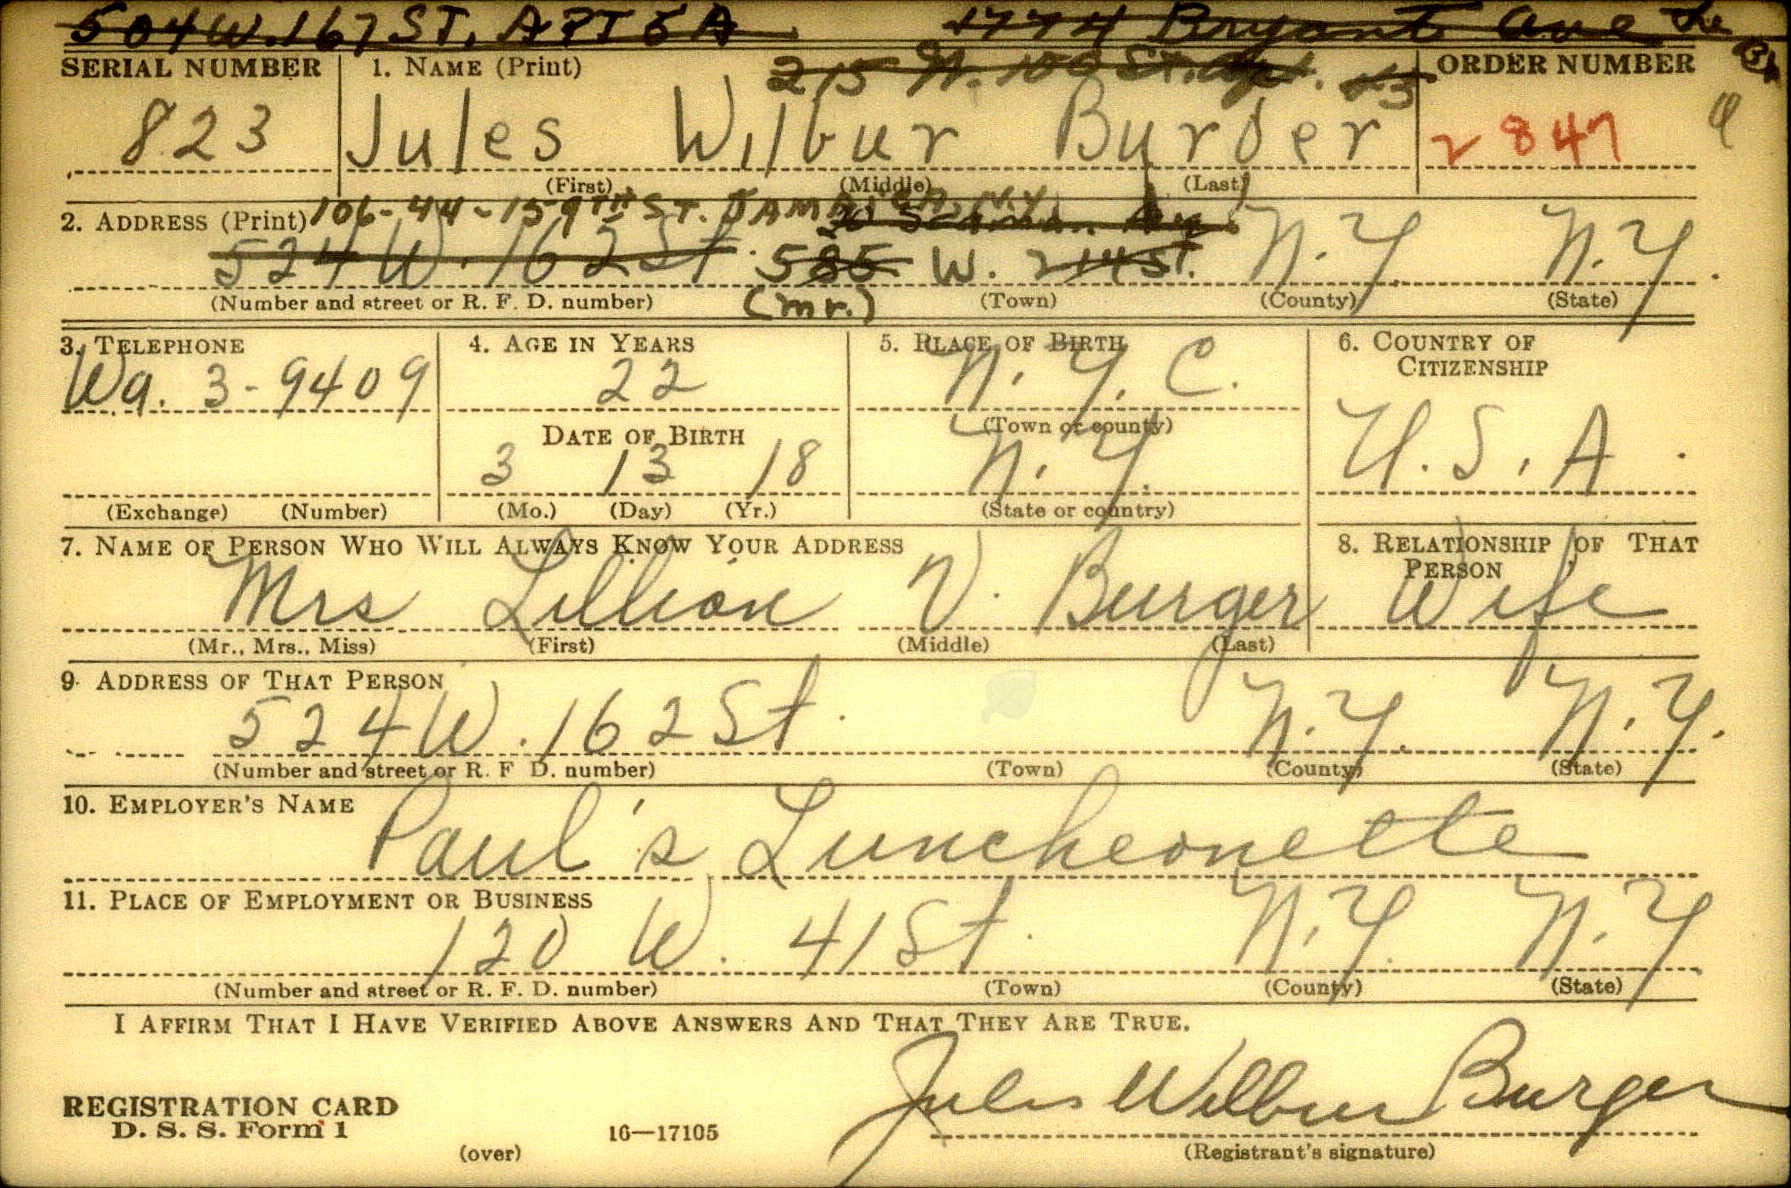 504 W. 167 ST, APT 5A 1774 Bryant Ave The Bx
SERIAL NUMBER 1. NAME (Print) 215 W. 100 St. Apt. ORDER NUMBER
823 Jules Wilbur Burger 2847
(First) (Middle) (Last)
2. ADDRESS (Print) 106-44-159TH ST. JAMAICA, N.Y.
524 W. 162 St. 585 W. 214 St. N.Y. N.Y.
(Number and street or R. F. D. number) (mr.) (Town) (County) (State)
3. TELEPHONE 4. AGE IN YEARS 5. PLACE OF BIRTH 6. COUNTRY OF CITIZENSHIP
Wa. 3-9409 22 N.Y.C.
DATE OF BIRTH (Town or county)
3 13 18 N.Y. U.S.A.
(Exchange) (Number) (Mo.) (Day) (Yr.) (State or country)
7. NAME OF PERSON WHO WILL ALWAYS KNOW YOUR ADDRESS 8. RELATIONSHIP OF THAT PERSON
Mrs Lillian V. Burger Wife
(Mr., Mrs., Miss) (First) (Middle) (Last)
9. ADDRESS OF THAT PERSON
524 W. 162 St. N.Y. N.Y.
(Number and street or R. F. D. number) (Town) (County) (State)
10. EMPLOYER'S NAME
Paul's Luncheonette
11. PLACE OF EMPLOYMENT OR BUSINESS
120 W. 41 St. N.Y. N.Y
(Number and street or R. F. D. number) (Town) (County) (State)
I AFFIRM THAT I HAVE VERIFIED ABOVE ANSWERS AND THAT THEY ARE TRUE.
Jules Wilbur Burger
REGISTRATION CARD
D. S. S. Form 1 16—17105
(over) (Registrant's signature)